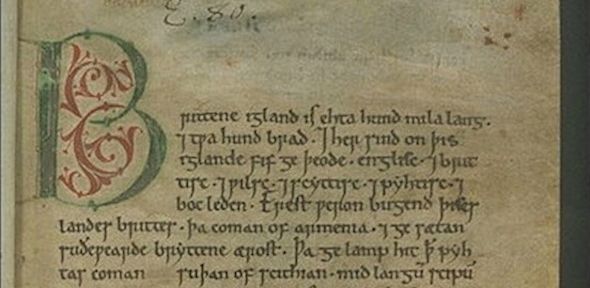 Brittene igland is ehta hund mila lang.
⁊ tƿa hund brad. ⁊ her sind on þis
iglande fif ge þeode. englisc. ⁊ brit
tisc. ⁊ ƿilsc. ⁊ scyttisc. ⁊ pyhtisc. ⁊
boc leden. Erest ƿeron bugend þises
landes brittes. þa coman of armenia. ⁊ ge sætan
suðeƿearde bryttene ærost. Þa ge lamp hit ꝥ pyh
tas coman suþan of scithian. mid langū scipū